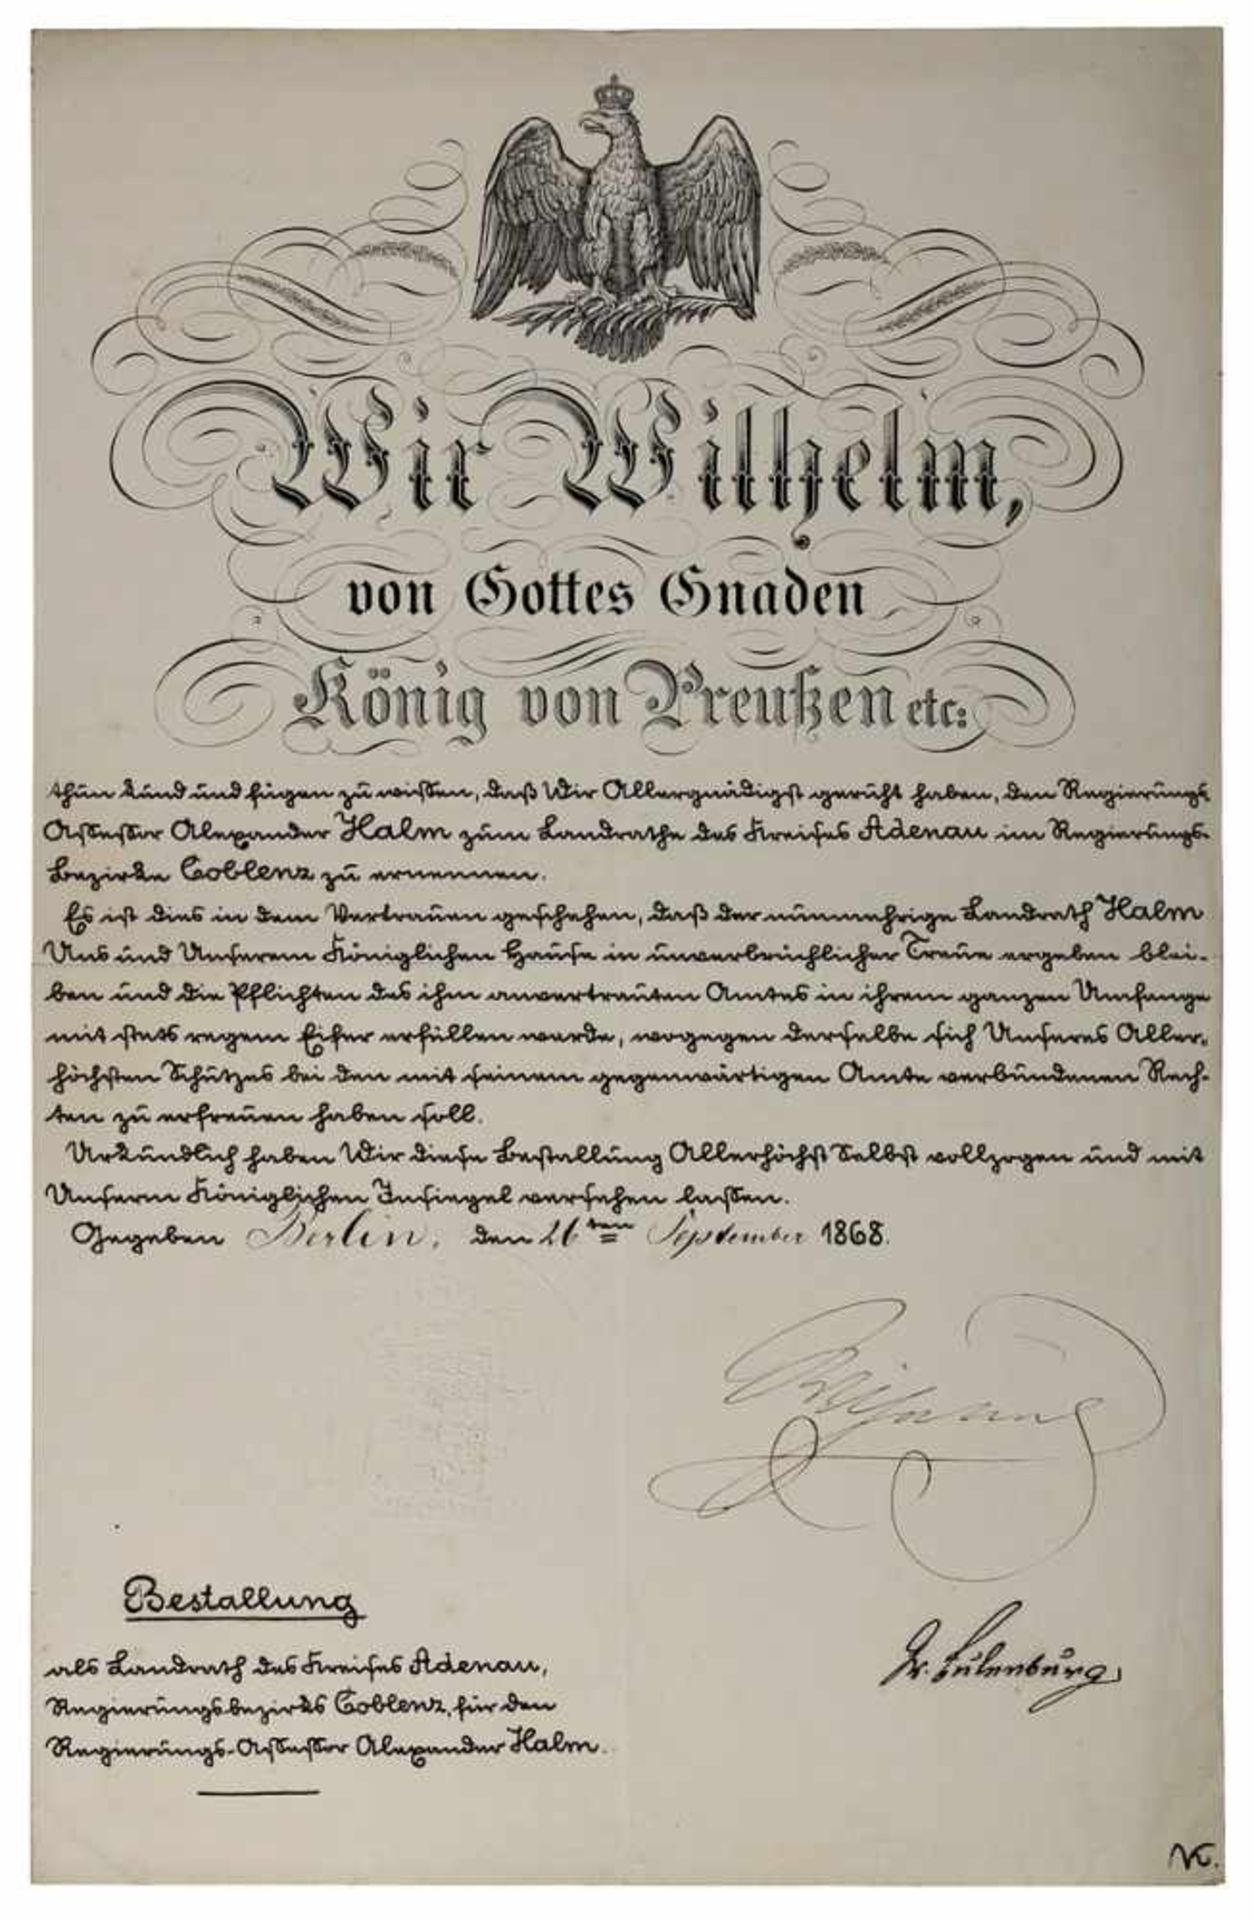 Wir Wilhelm,
von Gottes Gnaden
König von Preußen etc:
thun kund und fügen zu wissen, daß Wir Allergnädigst geruht haben, den Regierungs-
Assessor Alexander Halm zum Landrathe des Kreises Adenau im Regierungs-
Bezirke Coblenz zu ernennen.
Es ist dies in dem Vertrauen geschehen, daß der nunmehrige Landrath Halm
Uns und Unserem Königlichen Hause in unverbrüchlicher Treue ergeben blei-
ben und die Pflichten des ihm anvertrauten Amtes in ihrem ganzen Umfange
mit stets regem Eifer erfüllen werde, wogegen derselbe sich Unseres Aller-
höchsten Schutzes bei den mit seinem gegenwärtigen Amte verbundenen Rech-
ten zu erfreuen haben soll.
Urkundlich haben Wir diese Bestallung Allerhöchst Selbst vollzogen und mit
Unserm Königlichen Insiegel versehen lassen.
Gegeben Berlin, den 26ten September 1868.
Wilhelm
Gr. Eulenburg
Bestallung
als Landrath des Kreises Adenau,
Regierungsbezirks Coblenz, für den
Regierungs-Assessor Alexander Halm.